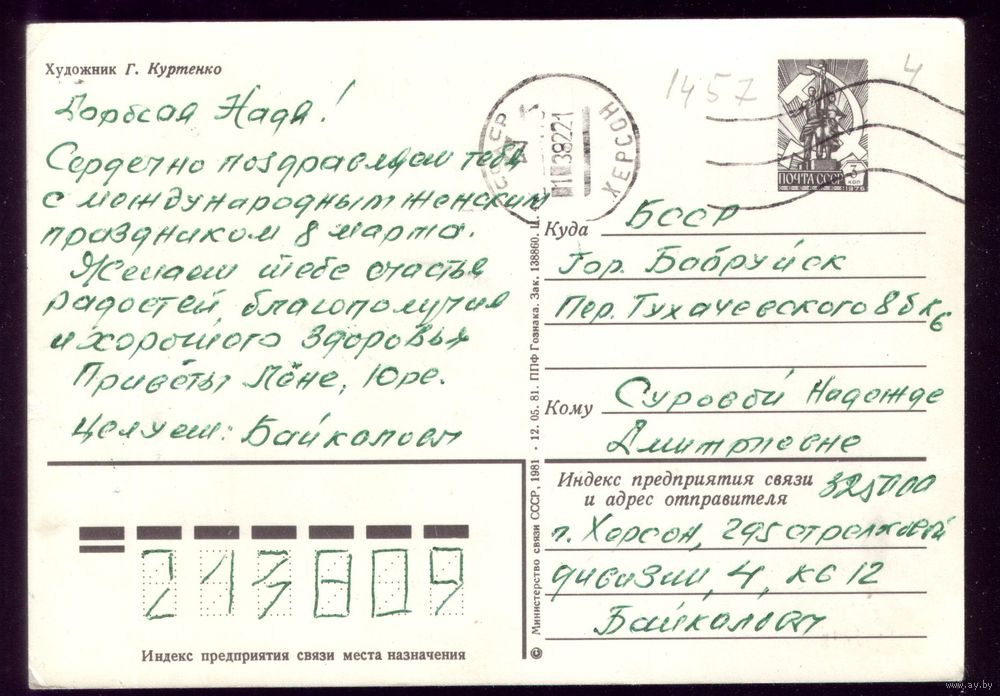 Художник Г. Куртенко
Дорогая Надя!
Сердечно поздравляем тебя
с международным женским
праздником 8 марта.
Желаем тебе счастья
радостей, благополучия
и хорошего здоровья
Приветы Лёне, Юре.
Целуем: Байкаловы
1457
4
ХЕРСОН
ПОЧТА СССР
3 коп
1976
Куда БССР
Гор. Бобруйск
Пер. Тухачевского 8б к 6
Кому Суровой Надежде
Дмитриевне
Индекс предприятия связи
и адрес отправителя 325000
г. Херсон, 295 стрелковой
дивизии, 4, кв 12
Байкаловы
213809
Индекс предприятия связи места назначения
© Министерство связи СССР, 1981 · 12. 05. 81. ППФ Гознака. Зак. 138860.
www.ay.by